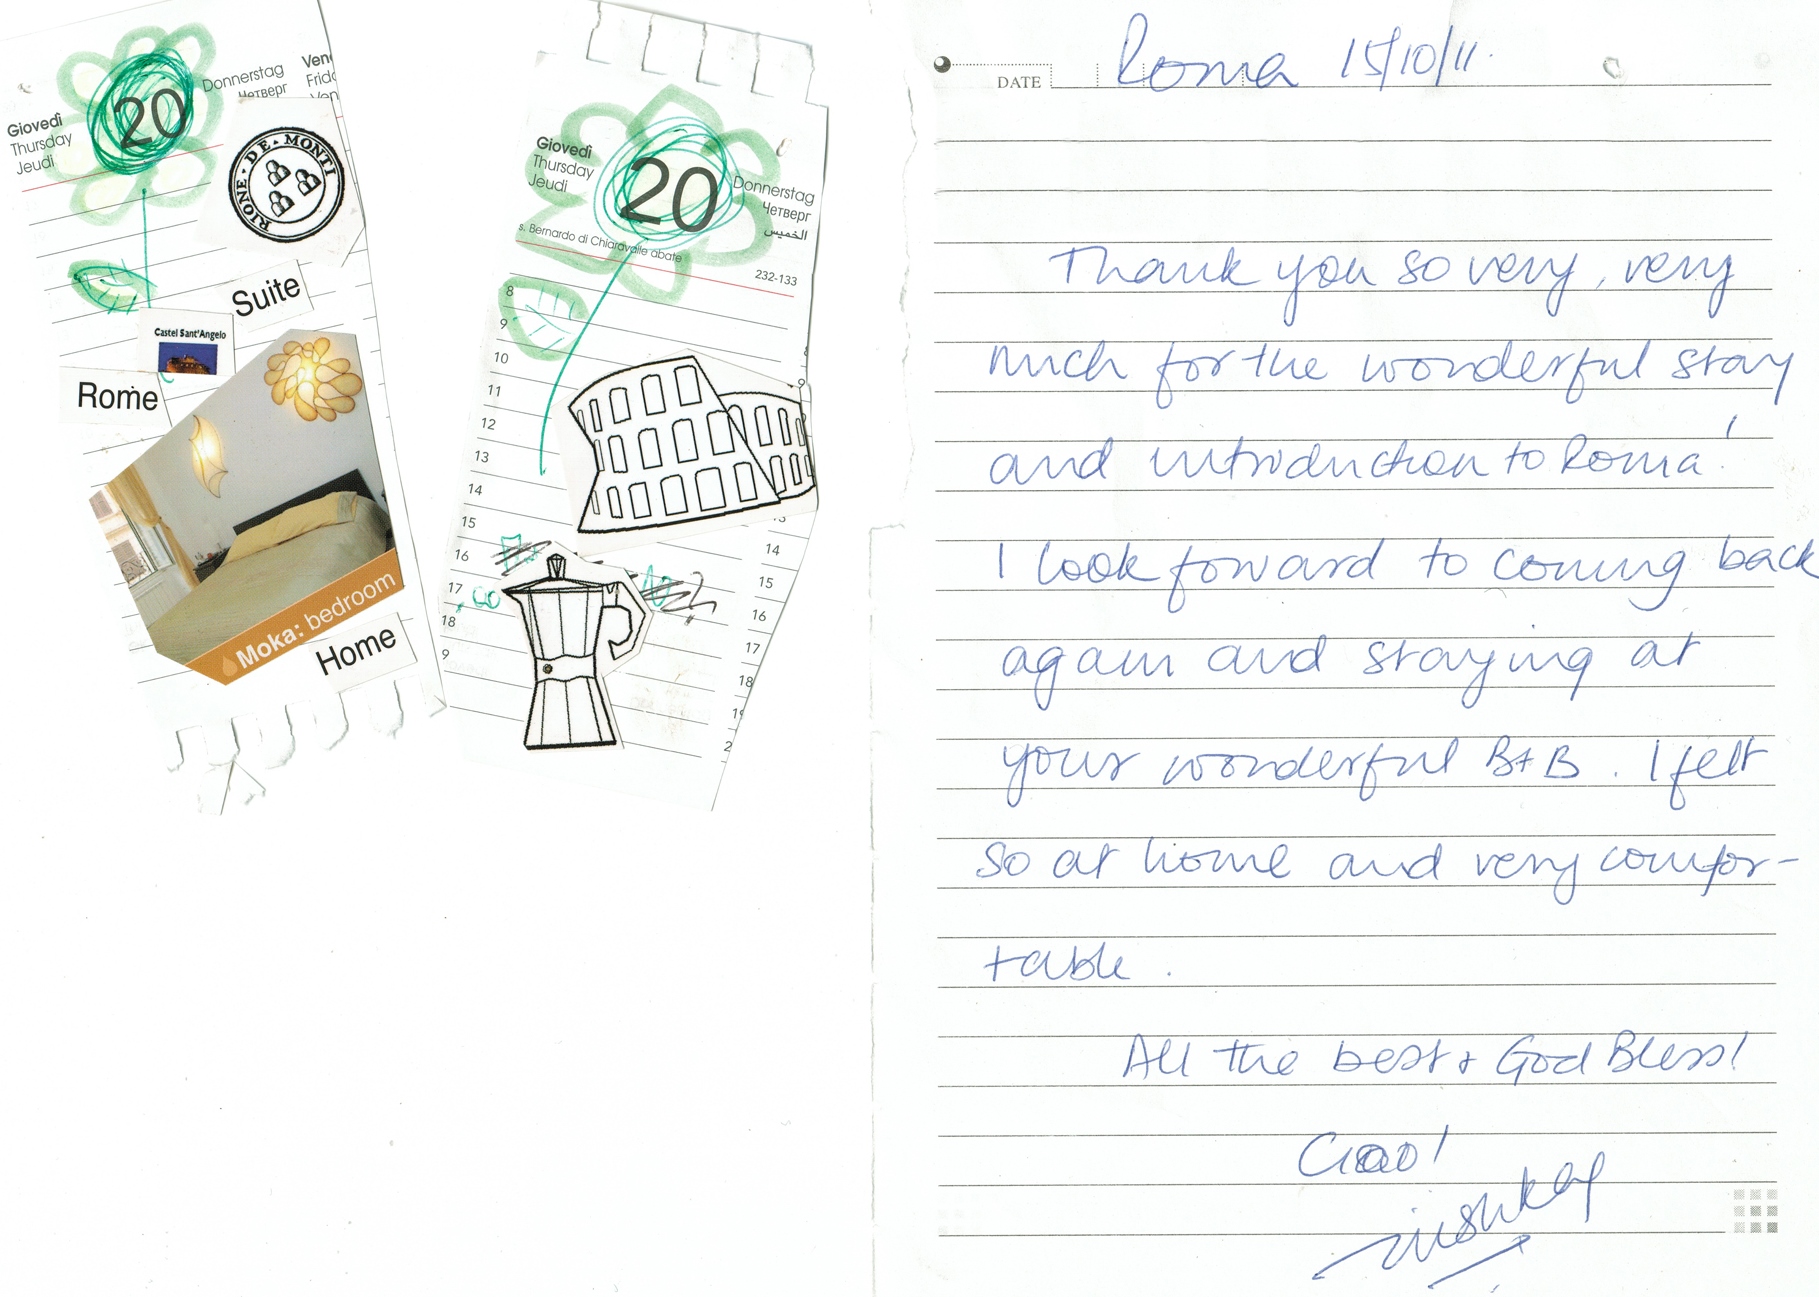 20
Giovedì
Thursday
Jeudi
Donnerstag
Четверг
RIONE · DE · MONTI
Suite
Castel Sant'Angelo
Rome
Moka: bedroom
Home
20
Giovedì
Thursday
Jeudi
Donnerstag
Четверг
الخميس
s. Bernardo di Chiaravalle abate
232-133
8
9
10
11
12
13
14
15
16
17
18
9
14
15
16
17
18
DATE
Roma 15/10/11.
Thank you so very, very
much for the wonderful stay
and introduction to Roma!
I look forward to coming back
again and staying at
your wonderful B+B. I felt
so at home and very comfor-
table.
All the best + God Bless!
Ciao!